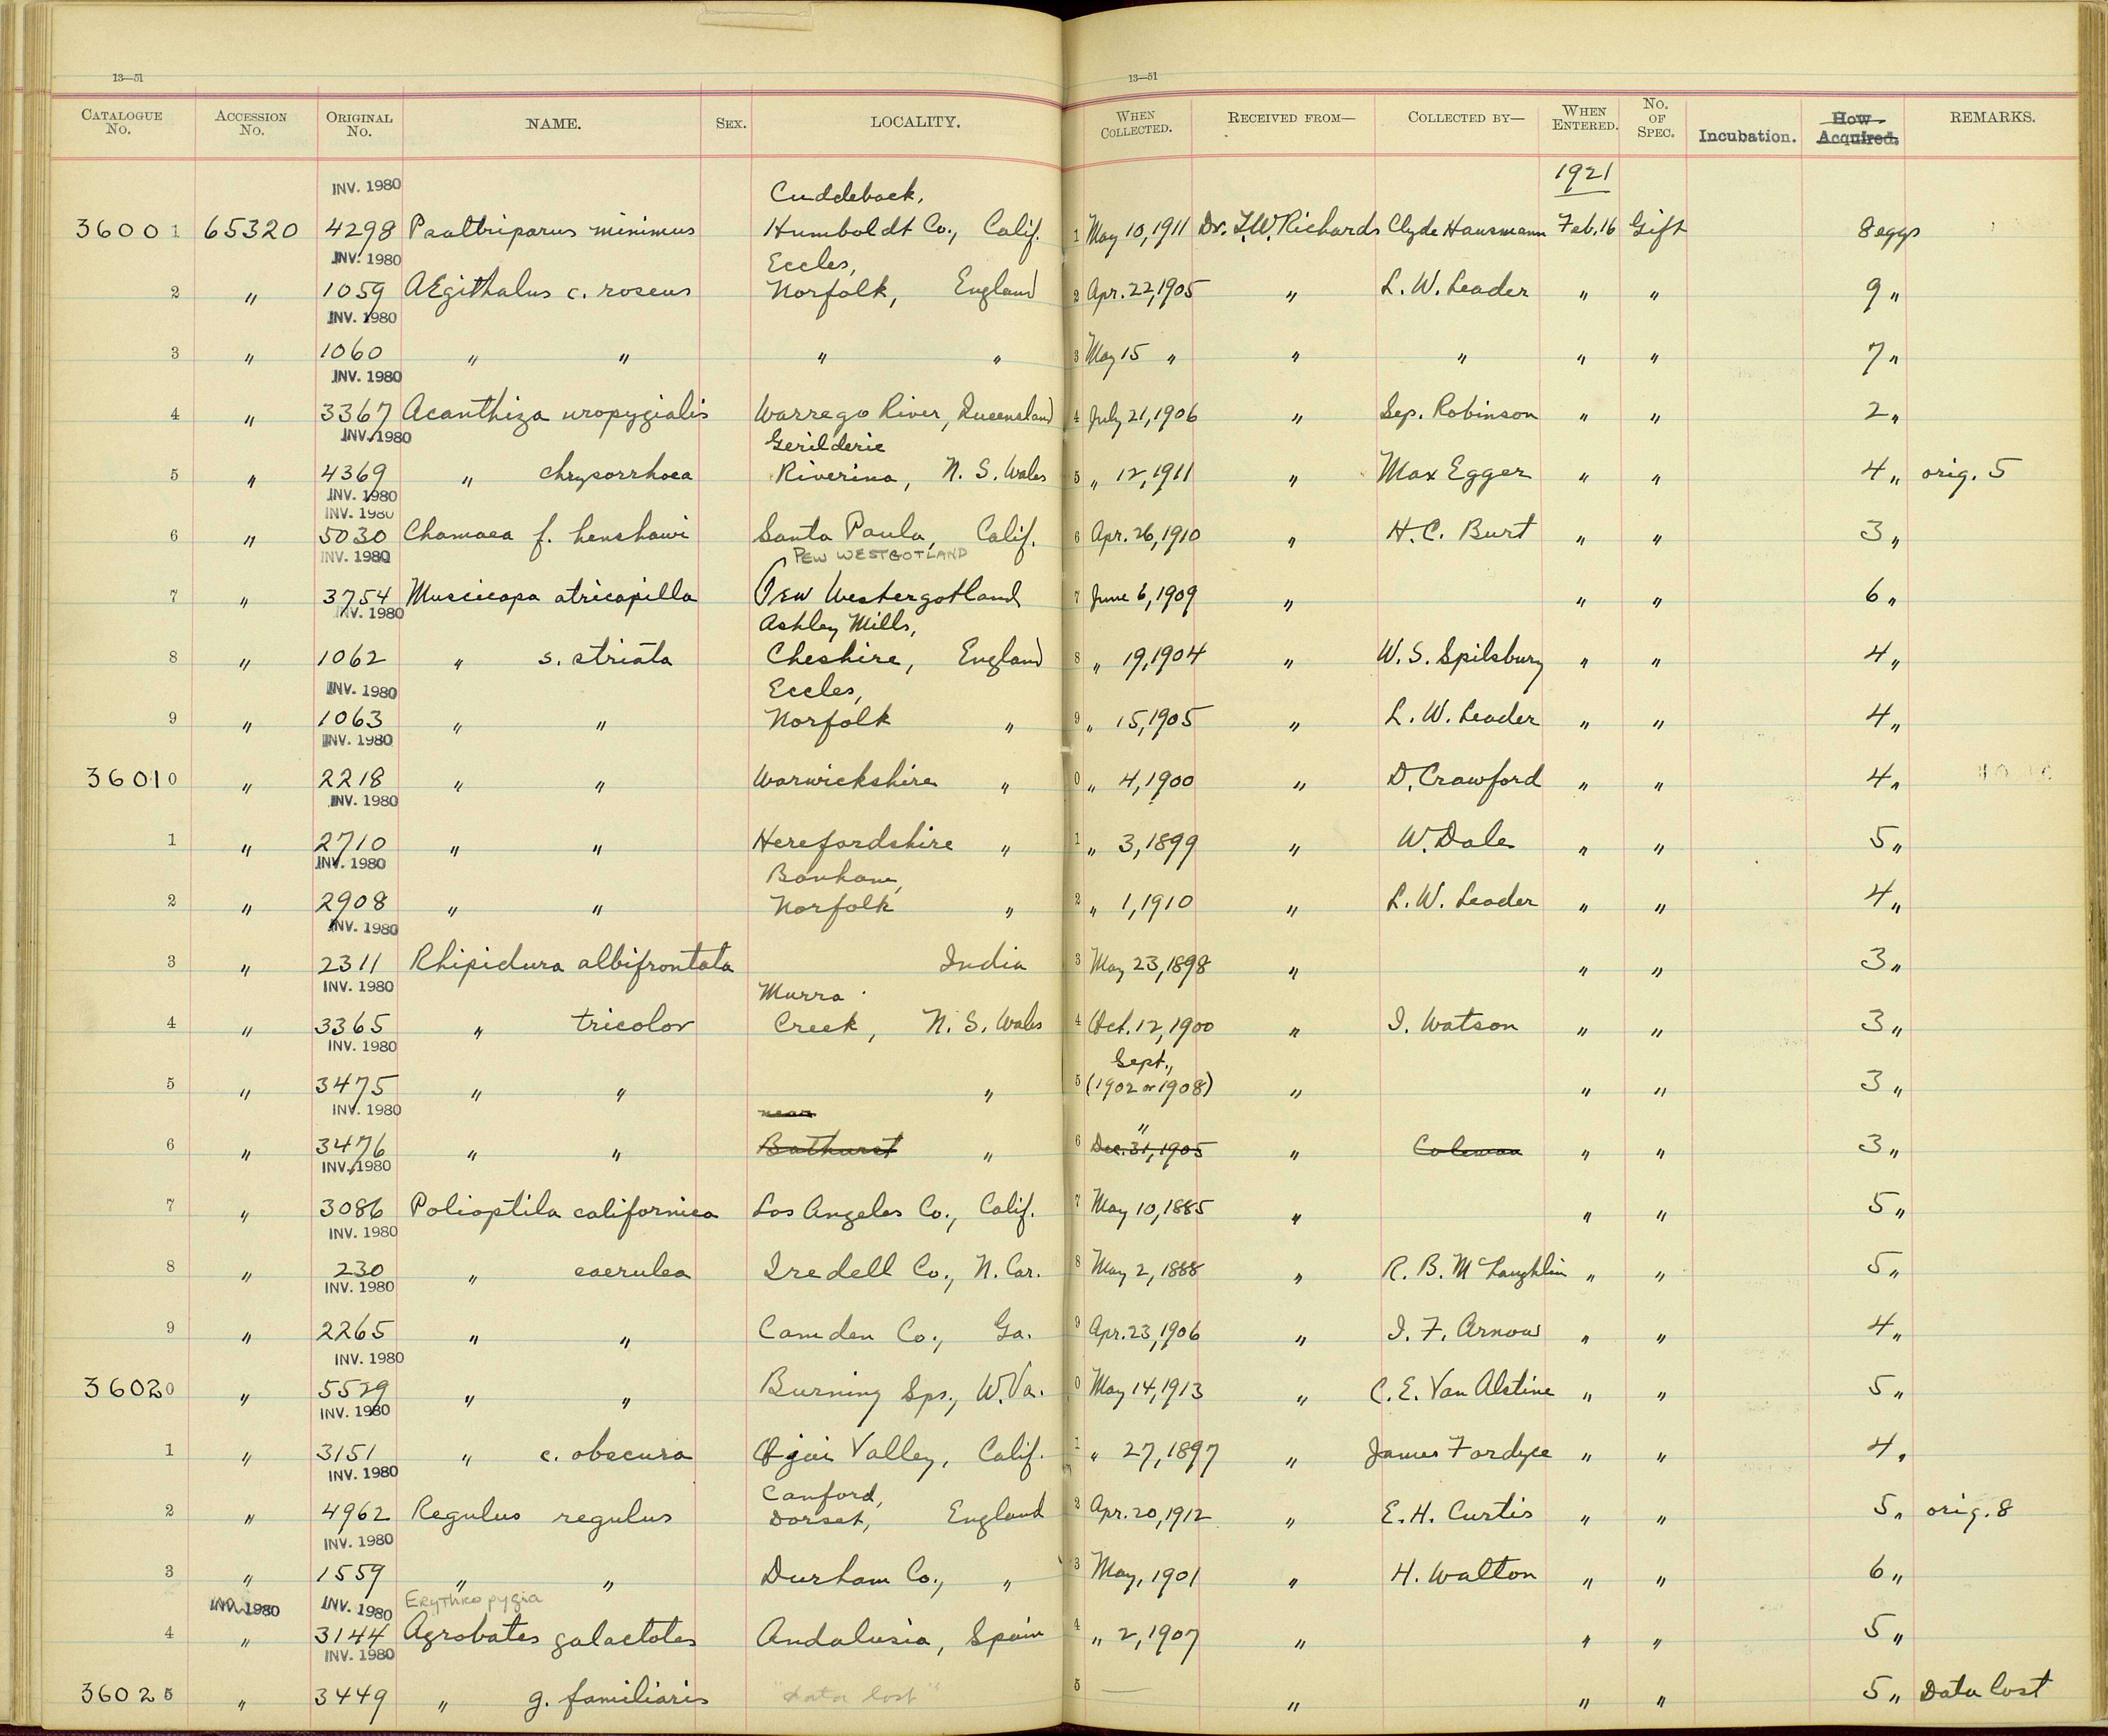 13—51 13—51
CATALOGUE No. ACCESSION No. ORIGINAL No. NAME. SEX. LOCALITY. WHEN COLLECTED. RECEIVED FROM— COLLECTED BY— WHEN ENTERED. No. OF SPEC. Incubation. How Acquired. REMARKS.
1921
INV. 1980 Cuddeback,
36001 65320 4298 Psaltriparus minimus Humboldt Co., Calif. 1 May 10, 1911 Dr. T.W. Richards Clyde Hausmann Feb. 16 Gift 8 eggs
INV. 1980 Eccles,
2 " 1059 AEgithalus c. roseus Norfolk, England 2 Apr. 22, 1905 " L. W. Leader " " 9 "
INV. 1980
3 " 1060 " " " " 3 May 15 " " " " " 7 "
INV. 1980
4 " 3367 Acanthiza uropygialis Warrego River, Queensland 4 July 21, 1906 " Sep. Robinson " " 2 "
INV. 1980 Gerilderie
5 " 4369 " chrysorrhoea Riverina, N. S. Wales 5 " 12, 1911 " Max Egger " " 4 " orig. 5
INV. 1980
INV. 1980
6 " 5030 Chamaea f. henshawi Santa Paula, Calif. 6 Apr. 26, 1910 " H. C. Burt " " 3 "
INV. 1980 PEW WESTGOTLAND
7 " 3754 Muscicapa atricapilla Pew Westergotland 7 June 6, 1909 " " " 6 "
INV. 1980 Ashley Mills,
8 " 1062 " s. striata Cheshire, England 8 " 19, 1904 " W. S. Spilsbury " " 4 "
INV. 1980 Eccles,
9 " 1063 " " Norfolk " 9 " 15, 1905 " L. W. Leader " " 4 "
INV. 1980
36010 " 2218 " " Warwickshire " 0 " 4, 1900 " D. Crawford " " 4 "
INV. 1980
1 " 2710 " " Herefordshire " 1 " 3, 1899 " W. Dale " " 5 "
INV. 1980 Banham,
2 " 2908 " " Norfolk " 2 " 1, 1910 " L. W. Leader " " 4 "
INV. 1980
3 " 2311 Rhipidura albifrontata India 3 May 23, 1898 " " " 3 "
INV. 1980 Murra
4 " 3365 " tricolor Creek, N. S. Wales 4 Oct. 12, 1900 " I. Watson " " 3 "
INV. 1980 Sept.,
5 " 3475 " " " 5 (1902 or 1908) " " " 3 "
INV. 1980 near "
6 " 3476 " " Bathurst " 6 Dec. 31, 1905 " Coleman " " 3 "
INV. 1980
7 " 3086 Polioptila californica Los Angeles Co., Calif. 7 May 10, 1885 " " " 5 "
INV. 1980
8 " 230 " caerulea Iredell Co., N. Car. 8 May 2, 1888 " R. B. McLaughlin " " 5 "
INV. 1980
9 " 2265 " " Camden Co., Ga. 9 Apr. 23, 1906 " I. F. Arnow " " 4 "
INV. 1980
36020 " 5529 " " Burning Sps., W. Va. 0 May 14, 1913 " C. E. Van Alstine " " 5 "
INV. 1980
1 " 3151 " c. obscura Ojai Valley, Calif. 1 " 27, 1897 " James Fordyce " " 4 "
INV. 1980 Canford,
2 " 4962 Regulus regulus Dorset, England 2 Apr. 20, 1912 " E. H. Curtis " " 5 " orig. 8
INV. 1980
3 " 1559 " " Durham Co., " 3 May, 1901 " H. Walton " " 6 "
INV. 1980 INV. 1980 ERYTHROPYGIA
4 " 3144 Agrobates galactotes Andalusia, Spain 4 " 2, 1907 " " " 5 "
INV. 1980
36025 " 3449 " g. familiaris "data lost" 5 — " " " 5 " Data lost